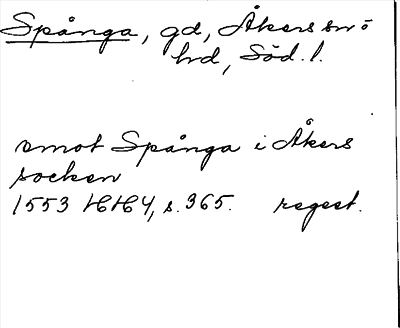 Spånga, gd, Åkers sn ō
hd, Söd. l.
emot Spånga i Åkers
socken
1553 HH 4, s. 365. regest.